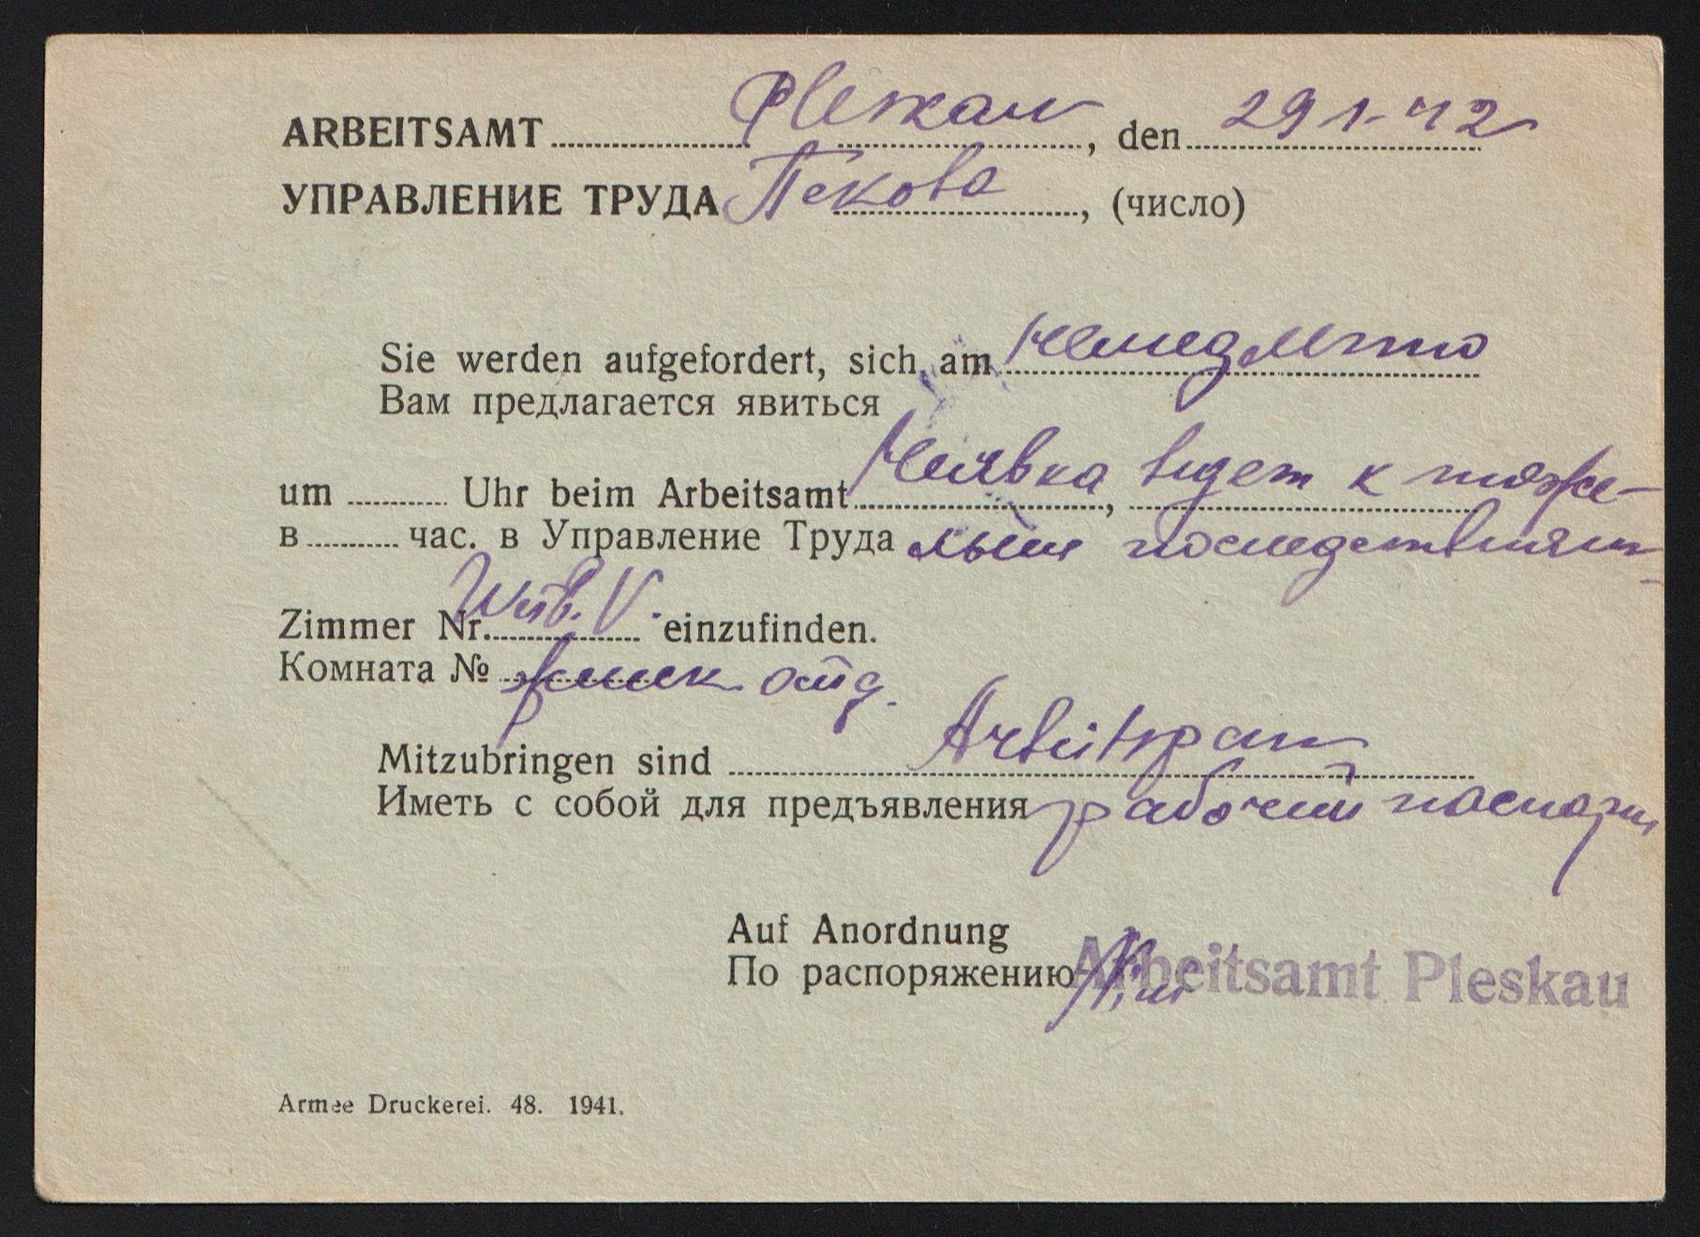 ARBEITSAMT Pleskau, den 29 1-42
УПРАВЛЕНИЕ ТРУДА Пскова, (число)
Sie werden aufgefordert, sich am немедленно
Вам предлагается явиться
um Uhr beim Arbeitsamt Неявка ведет к тяже-
в час. в Управление Труда лым последствиям
Zimmer Nr. V. einzufinden.
Комната №
Mitzubringen sind Arbeitspass
Иметь с собой для предъявления рабочий паспорт
Auf Anordnung
По распоряжению Arbeitsamt Pleskau
Armee Druckerei. 48. 1941.